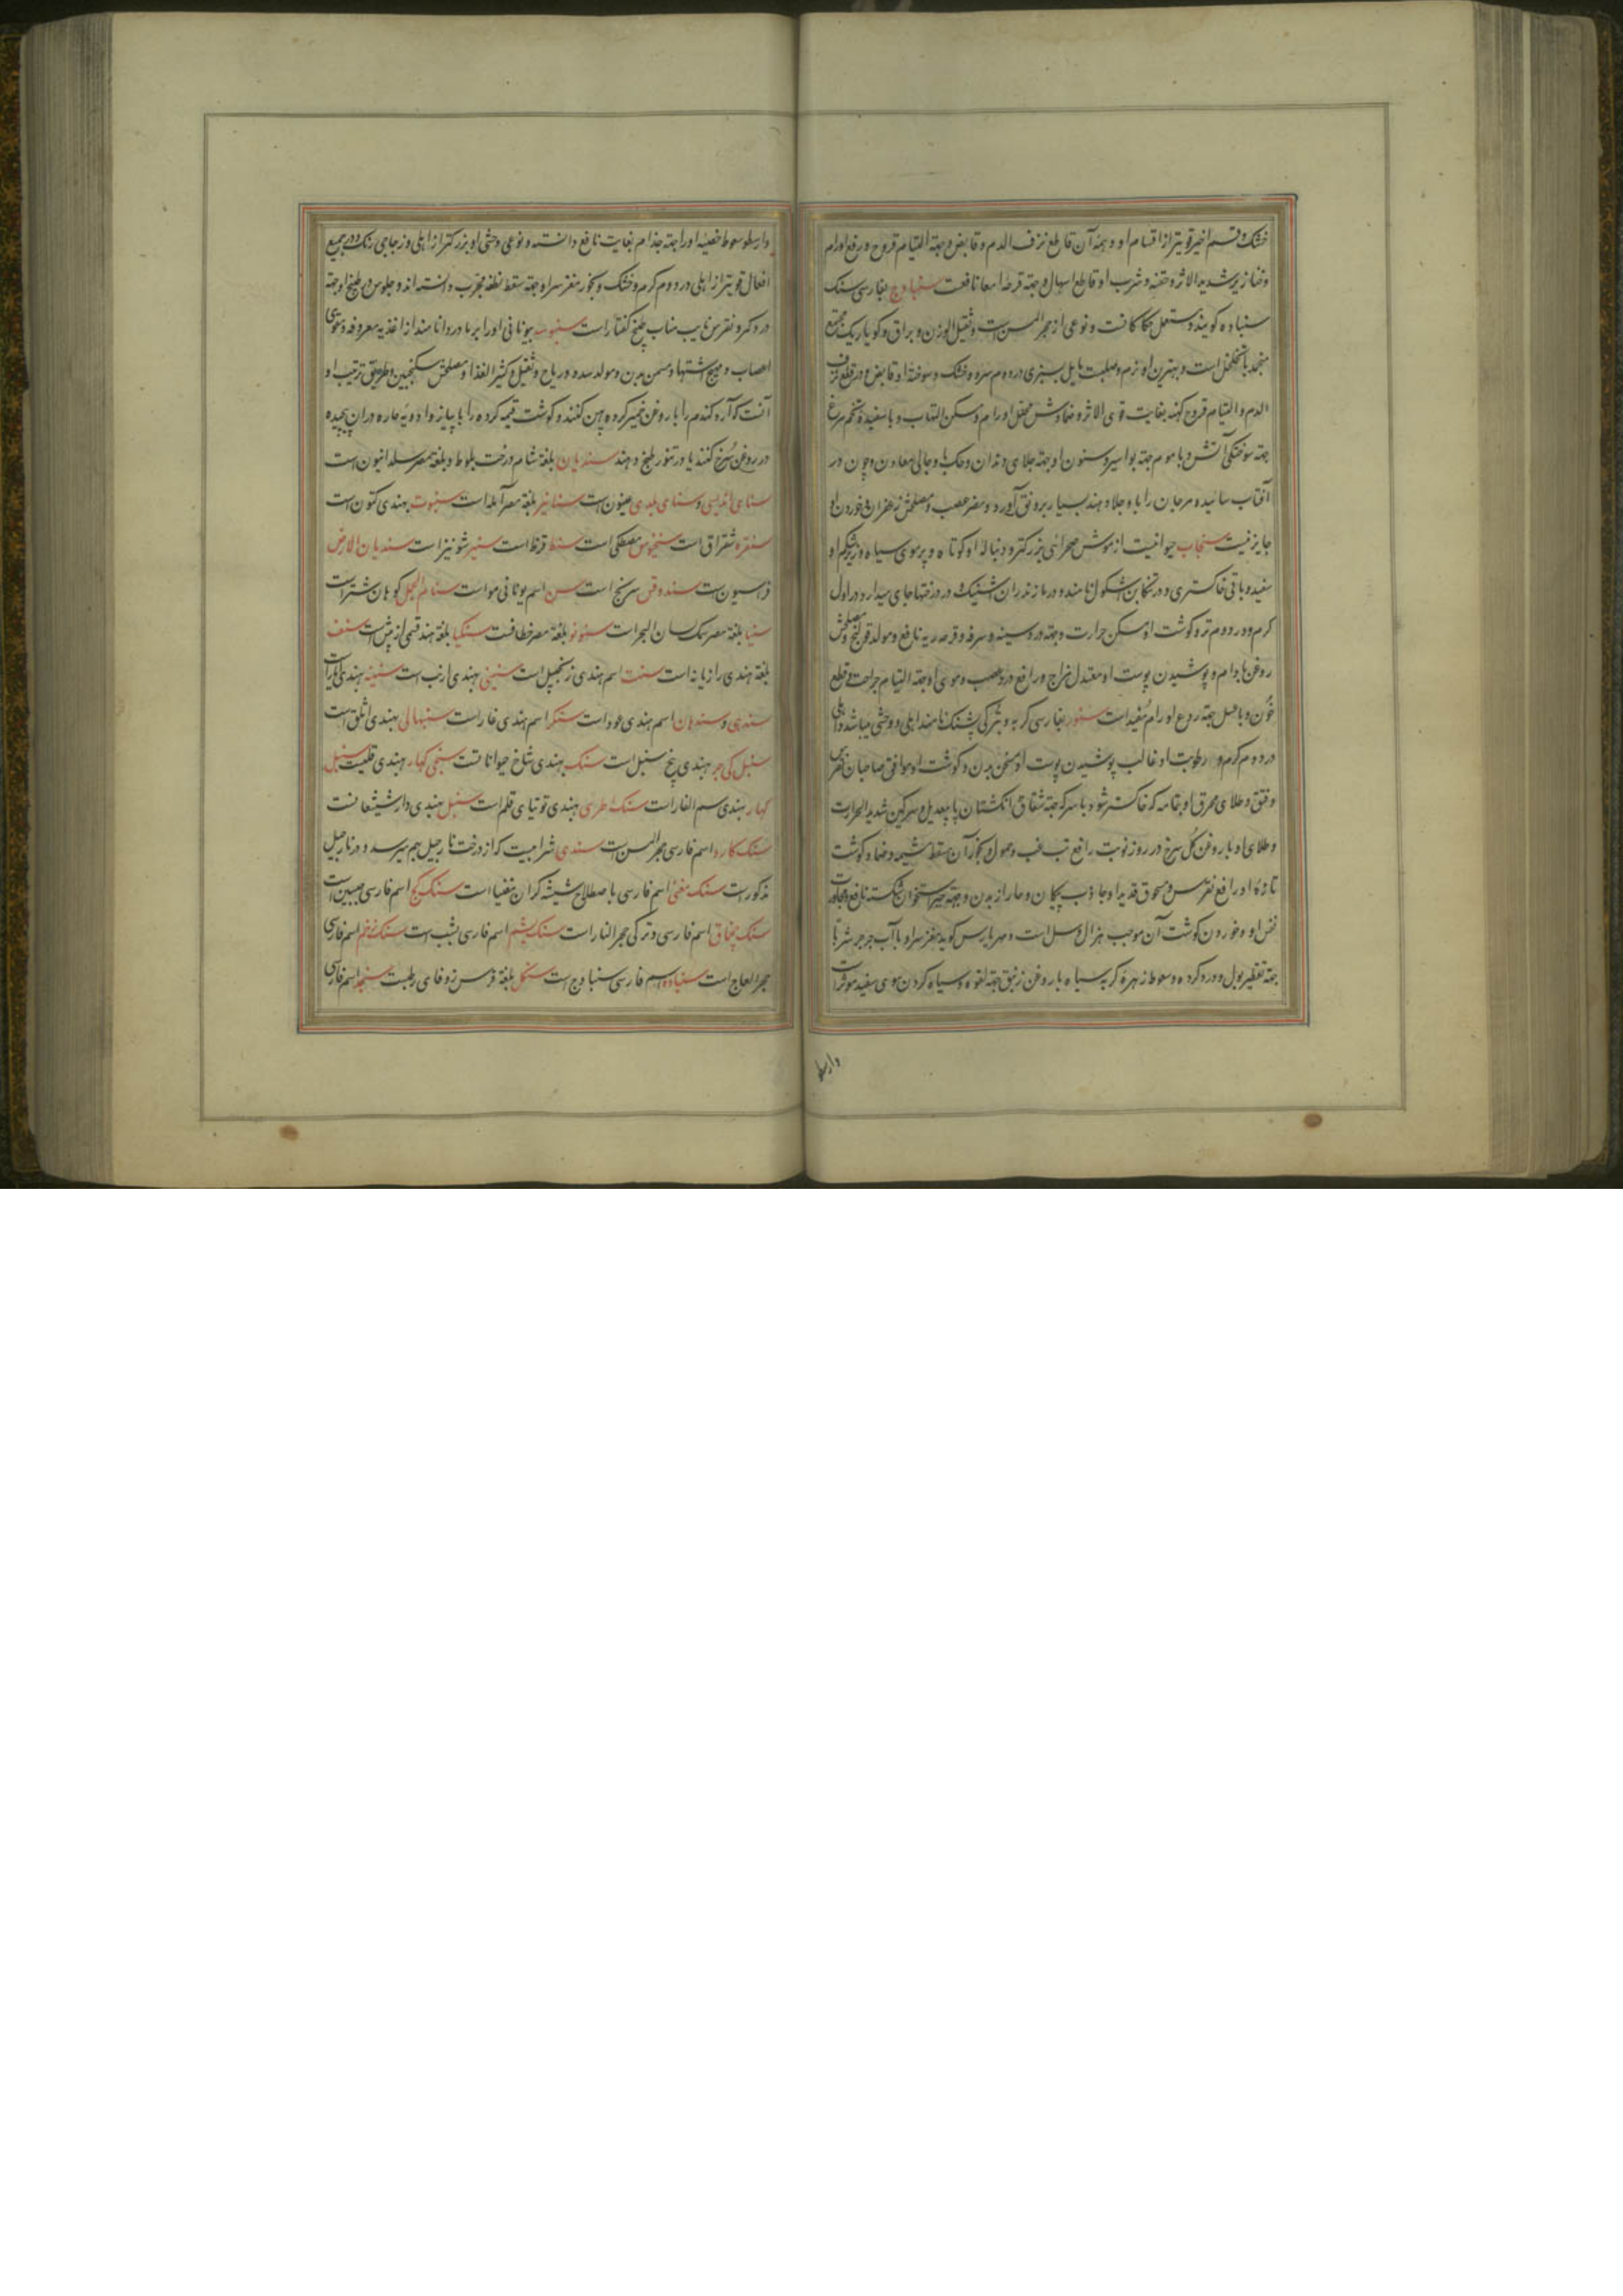 خشک و قسم اخیر قویتر از اقسام او و همهٔ آن قاطع نزف الدم و قابض و جهة التیام قروح و رفع اورام
و خنازیر شدید الاثر و حقنه و شرب او قاطع اسهال و جهة قرحه امعا نافعست سنبادج بفارسی سنک
سنباده کویند و مستعمل حکاکانست و نوعی از حجر المسن است و ثقیل الوزن و براق و کویا ریک مجتمع
منجمد با تخلخل است و بهترین او نرم و صلبست مایل بسبزی در دوم سرد و خشک و سوختهٔ او قابض و در قطع نزف
الدم و التیام قروح کهنه بغایت قوی الاثر و ضمادش محلل اورام و مسکن التهاب و با سفیدهٔ تخم مرغ
جهة سوختکی آتش و با موم جهة بواسیر و سنون او جهة جلای دندان و حک و جالی معادن و چون در
آفتاب سائیده مرجان را باو جلا دهند بسیار برونق آورد و مضر عصب و مصلحش زعفران و خوردن او
جایز نیست سنجاب حیوانیست از موش صحرائی بزرکتر و دنبالهٔ او کوتاه و پر موی سیاه و زیر شکم او
سفید و باقی خاکستری و در تنکابن اشکول نامند و در مازندران اشنیک و در درختها جای میدارد در اول
کرم و در دوم تر و کوشت او مسکن حرارت و جهة درد سینه و سرفه و قرحه ریه نافع و مولد قولنج و مصلحش
روغن بادام و پوشیدن پوست او معتدل مزاج و رافع درد عصب و موی او جهة التیام جراحت و قطع
خون و با عسل جهة ردع اورام مفید است سنور بفارسی کربه و بترکی پشنک نامند اهلی و وحشی میباشد و اهلی
در دوم کرم و رطوبت او غالب پوشیدن پوست او مسخن بدن و کوشت او موافق صاحبان
و فتق و طلای محرق او بتمامه که خاکستر شود با سرکه جهة شقاق انکشتان پا بیعدیل و سرکین شدید الحرارت
و طلای او با روغن کل سرخ در روز نوبت رافع تب غب و حمول و بخور آن مسقط مشیمه و ضماد کوشت
تازهٔ او رافع نقرس و مسحوق قدید او جاذب پیکان و خار از بدن و جهة جبر استخوان شکسته نافع و مجاورت
نفس او و خوردن کوشت آن موجب هزال و سل است و مهراریس کوید مغز سر او با آب جرجیر شربا
جهة تقطیر بول و درد کرده و سعوط زهرهٔ کربه سیاه با روغن زنبق جهة لقوه و سیاه کردن موی سفید موثر است
وارسطو
وارسطو سعوط خصیهٔ او را جهة جذام بغایت نافع دانسته و نوعی وحشی او بزرکتر از اهلی و زجاجی رنک و در جمیع
افعال قویتر از اهلی در دوم کرم و خشک و بخور مغز سر او جهة سقط نطفه مجرب دانسته اند و جلوس در طبیخ او جهة
درد کمر و نقرس نایب مناب طبیخ کفتار است سنبوسه بیونانی اورا بربادردانا مند از اغذیه معروفه و مقوی
اعصاب و مهیج اشتها و مسمن بدن و مولد سده و ریاح و ثقیل و کثیر الغذا و مصلحش سکنجبین و طریق ترتیب او
آنست که آرد کندم را با روغن خمیر کرده پهن کنند و کوشت قیمه کرده را با پیاز و ادویهٔ حاره در ان پیچیده
در روغن سرخ کنند یا در تنور طبخ دهند سندیان بلغة شام درخت بلوط و بلغة مصر سلدانیون است
سنای اندلسی و سنای بلدی عینون است سنانیر بلغة مصر آمله است سنبوت بهندی کتون است
سنقره شقراق است سنخیوس مصطکی است سنط قرظ است سنیر شونیز است سندیان الارض
فراسیون است سندوقس سرنج است سن اسم یونانی مو است سنام الجمل کوهان شتر است
سنیا بلغة مصر سمک لسان البحر است سنونو بلغة مصر خطافست سنکیا بلغة هند قسمی از بیش است سنف
بلغة هندی رازیانه است سنت اسم هندی زنجبیل است سنینی بهندی ارنب است سنینه بهندی
سندی و سندهان اسم هندی عود است سنکرا اسم هندی غار است سنبهالی بهندی اثلق است
سنبل کی جر بهندی بیخ سنبل است سنک بهندی شاخ حیوانات است سنجی کهار بهندی قلیست سنبل
کهار بهندی سم الفار است سنک طری بهندی توتیای قلم است سنبل بهندی دارشیشعانست
سنک کارد اسم فارسی حجر المسن است سندی شرابیست که از درخت نارجیل بهم میرسد و در نارجیل
مذکور است سنک مغنی اسم فارسی باصطلاح شیشه کران مغنیسا است سنک کج اسم فارسی جبسین است
سنک چخماق اسم فارسی و ترکی حجر النار است سنک یشم اسم فارسی یشب است سنک زخم اسم فارسی
حجر العاج است سنباده اسم فارسی سنبادج است سنکل بلغة فرس زوفای رطبست سنجد اسم فارسی